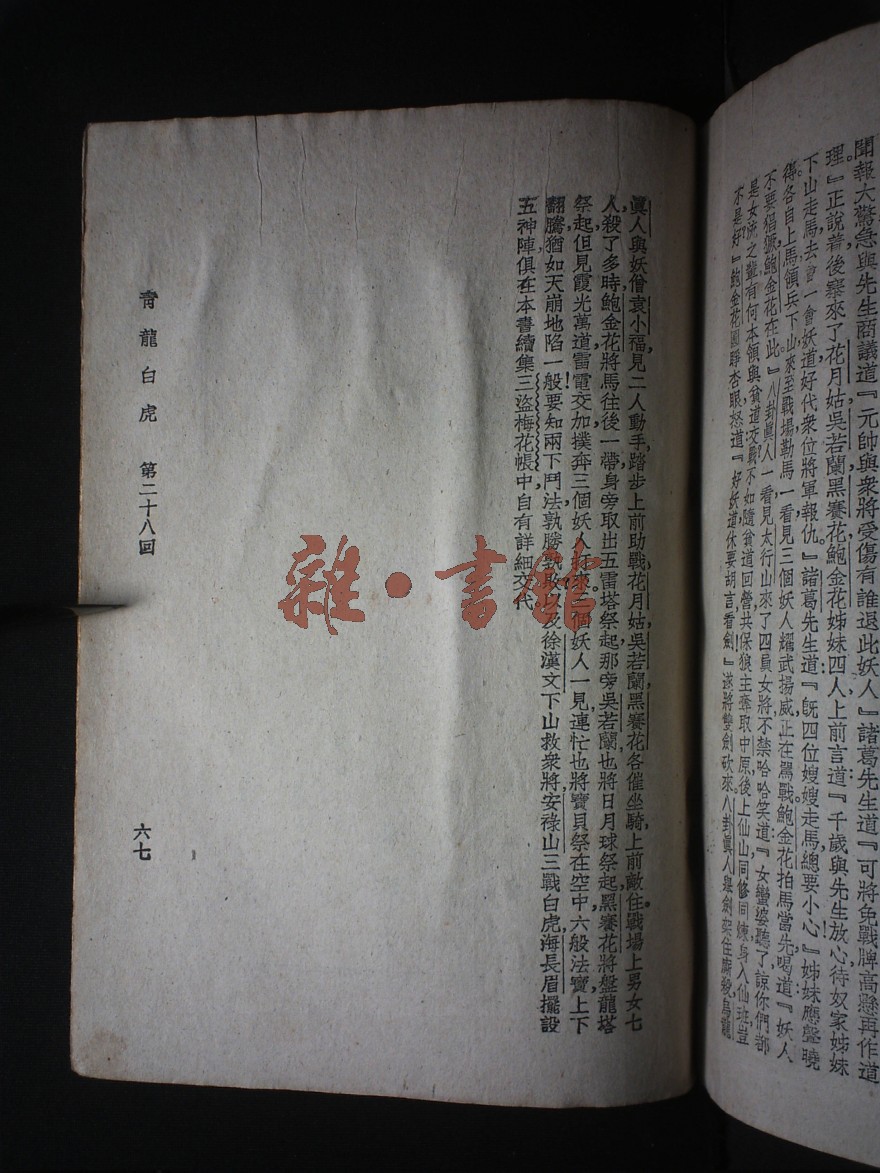 聞報大驚急與先生商議道『元帥與衆將受傷有誰退此妖人』諸葛先生道『可將免戰牌高懸再作道
理。』正說着後寨來了花月姑吳若蘭黑賽花鮑金花姊妹四人上前言道『千歲與先生放心待奴家姊妹
下山走馬去會一會妖道好代衆位將軍報仇』諸葛先生道『旣四位嫂嫂走馬總要小心』姊妹應聲曉
得各自上馬領兵下山來至戰場勒馬一看見三個妖人耀武揚威正在駡戰鮑金花拍馬當先喝道『妖人
不要猖獗鮑金花在此』八卦眞人一看見太行山來了四員女將不禁哈哈笑道『女蠻婆聽了諒你們都
是女流之輩有何本領與貧道交戰不如隨貧道回營共保狼主奪取中原後上仙山同修同煉身入仙班豈
不是好』鮑金花圓睜杏眼怒道『好妖道休要胡言看劍』遂將雙劍砍來八卦眞人舉劍架住廝殺烏龍
眞人與妖僧袁小福見二人動手踏步上前助戰花月姑吳若蘭黑賽花各催坐騎上前敵住戰場上男女七
人殺了多時鮑金花將馬往後一帶身旁取出五雷塔祭起那旁吳若蘭也將日月球祭起黑賽花將盤龍塔
祭起但見霞光萬道雷電交加撲奔三個妖人打來三個妖人一見連忙也將寶貝祭在空中六般法寶上下
翻騰猶如天崩地陷一般要知兩下鬥法孰勝孰敗以及徐漢文下山救衆將安祿山三戰白虎海長眉擺設
五神陣俱在本書續集三盜梅花帳中自有詳細交代
靑龍白虎 第二十八回
六七
雜·書館